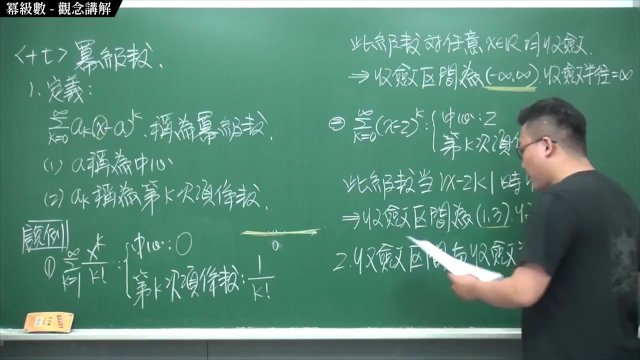 冪級數 - 觀念講解
<十七> 冪級數.
1. 定義:
∞ Σ k=0 aₖ(x-a)ᵏ 稱為冪級數.
(1) a 稱為中心
(2) aₖ 稱為第 k 次項係數.
說例
① ∞ Σ k=1 xᵏ/k! : { 中心: 0
第 k 次項係數: 1/k!
0
此級數對任意 x∈R 均收斂.
⇒ 收斂区間為 (-∞,∞) 收斂半徑=∞
② ∞ Σ k=0 (x-2)ᵏ : { 中心: 2
第 k 次項係
此級數當 |x-2|<1 時
⇒ 收斂区間為 (1,3).
2. 收斂区間与收斂